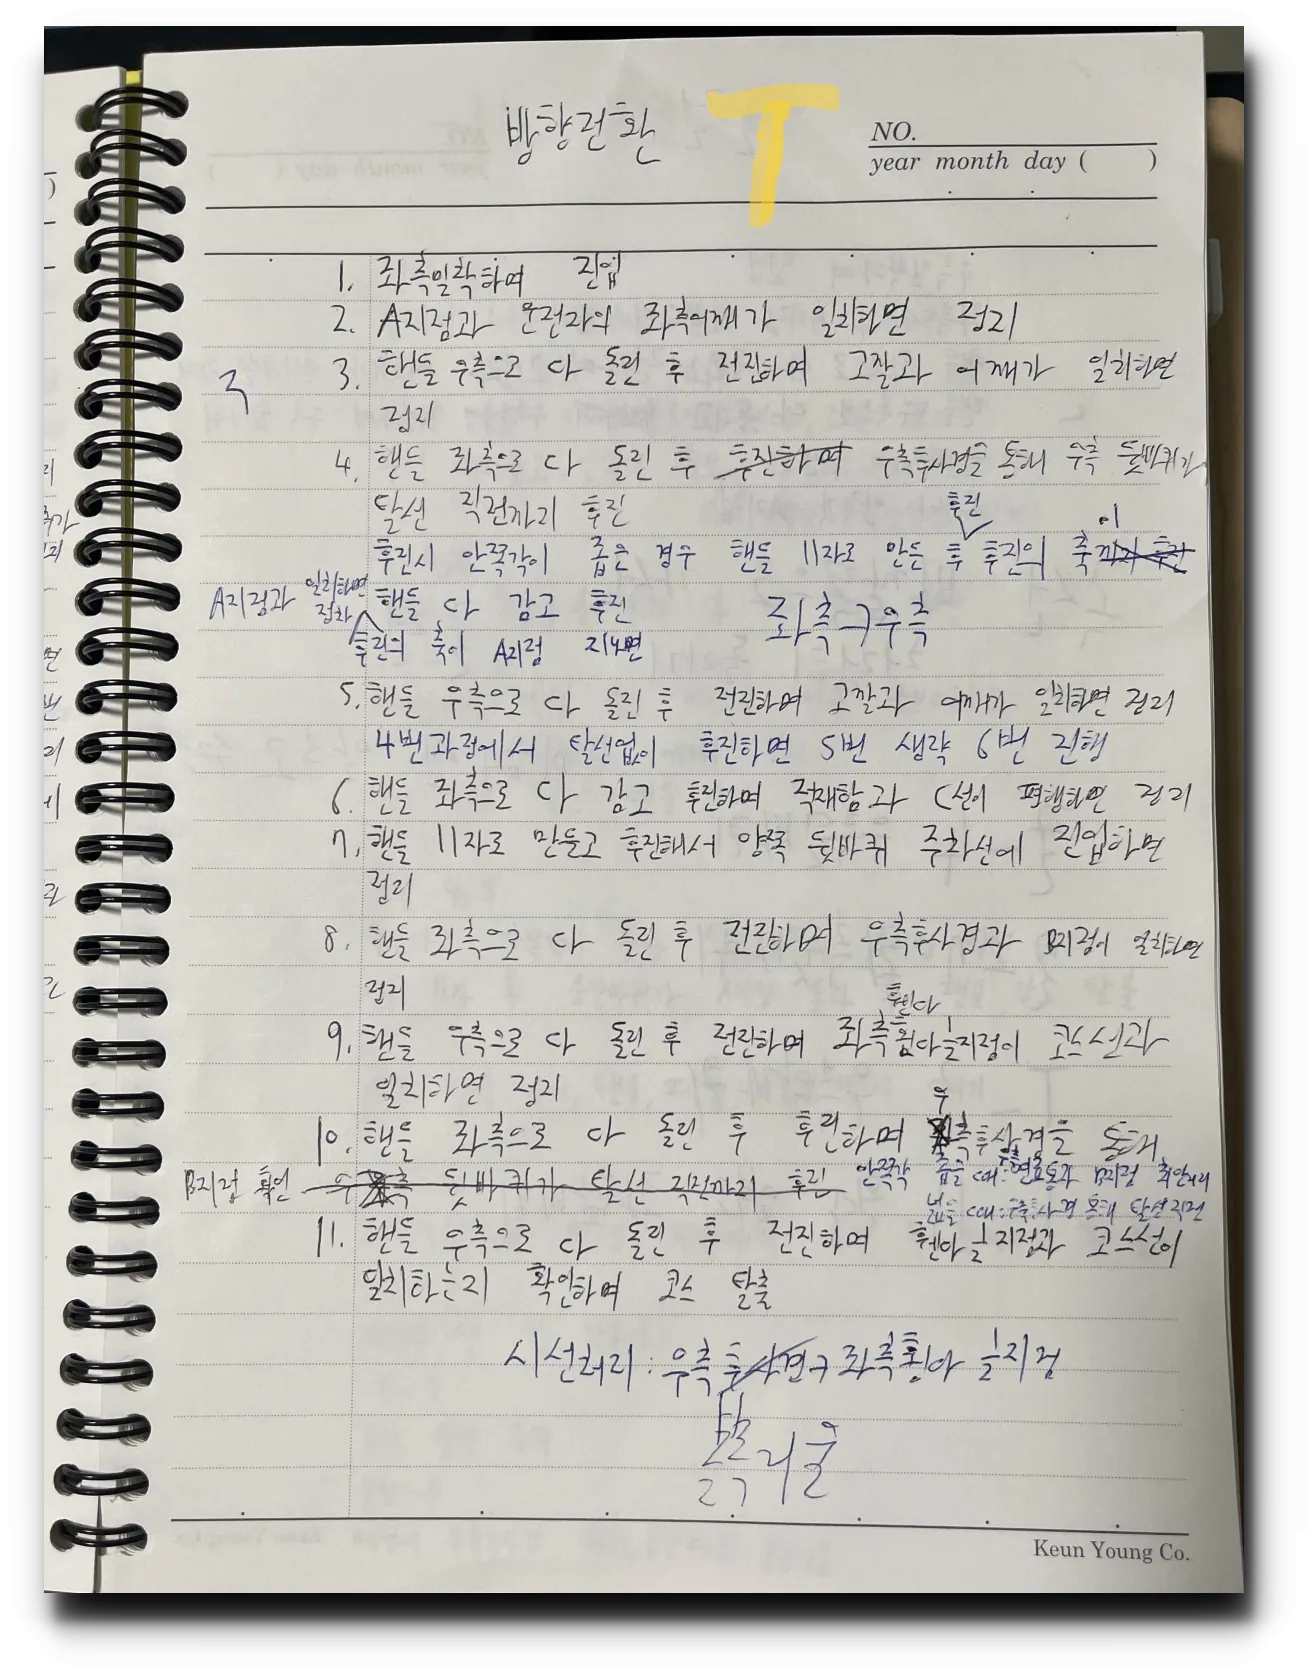 방향전환 T
NO.
year month day ( )
1. 좌측밀착하여 진입
2. A지점과 운전자의 좌측어깨가 일치하면 정지
3. 핸들 우측으로 다 돌린 후 전진하며 고깔과 어깨가 일치하면
정지
4. 핸들 좌측으로 다 돌린 후 후진하며 우측후사경을 통해 우측 뒷바퀴가
탈선 직전까지 후진
후진
이
후진시 안쪽각이 좁은 경우 핸들 11자로 만든 후 후진의 축까지 후진
A지점과 일치하면 핸들 다 감고 후진
정차
좌측→우측
후진의 축이 A지점 지나면
5. 핸들 우측으로 다 돌린 후 전진하며 고깔과 어깨가 일치하면 정지
4번과정에서 탈선없이 후진하면 5번 생략 6번 진행
6. 핸들 좌측으로 다 감고 후진하며 적재함과 C선이 평행하면 정지
7. 핸들 11자로 만들고 후진해서 양쪽 뒷바퀴 주차선에 진입하면
정지
8. 핸들 좌측으로 다 돌린 후 전진하며 우측후사경과 B지점이 일치하면
정지
휀다
9. 핸들 우측으로 다 돌린 후 전진하며 좌측 끝지점이 코스선과
일치하면 정지
우
10. 핸들 좌측으로 다 돌린 후 후진하며 측후사경을 통해
B지점 확인 뒷바퀴가 탈선 직전까지 후진 안쪽각 좁을 때: B지점 확인
넓을 때: 우측후사경 통해 탈선직전
11. 핸들 우측으로 다 돌린 후 전진하며 휀다 끝지점과 코스선이
일치하는지 확인하며 코스 탈출
시선처리: 우측후사경→좌측휀다 끝지점
Keun Young Co.